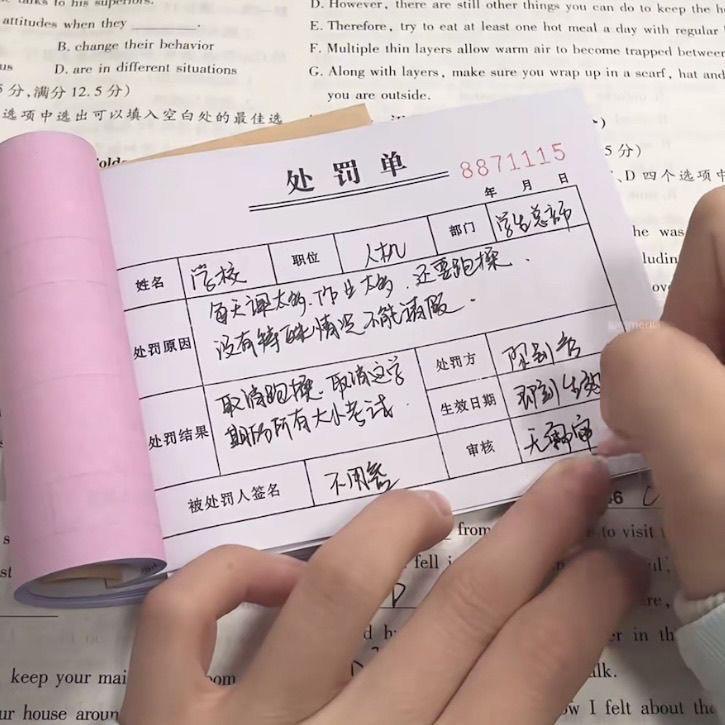 attitudes when they
B. change their behavior
us
D. are in different situations
5分,满分 12.5分)
选项中选出可以填入空白处的最佳选
D. However, there are still other things you can do to keep the
E. Therefore, try to eat at least one hot meal a day with regular
F. Multiple thin layers allow warm air to become trapped between
G. Along with layers, make sure you wrap up in a scarf, hat and
you are outside.
5分)
、D 四个选项中
he was
处罚单
8871115
年 月 日
姓名 学校 职位 人机 部门 学生总部
处罚原因
每天课太多,作业太多,还要跑操.
没有特殊情况不能请假.
处罚结果
取消跑操.取消这学
期所有大小考试.
处罚方
生效日期 即刻生效
审核 无需审
被处罚人签名 不用签
from
to visit
fell i
D
er in th
keep your mai
oom
alk.
ur house aroun
w I felt about the